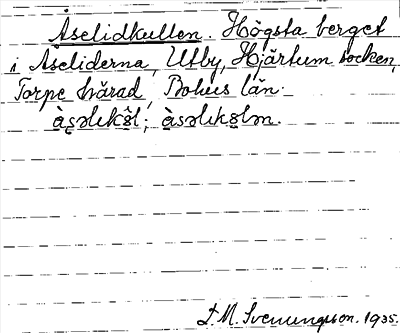 Åselidkullen. Högsta berget
i Åseliderna, Utby, Hjärtum socken,
Torpe härad, Bohus län.
àsəlikə̂l; àsəlikəlm.
M. Svenungsson. 1935.